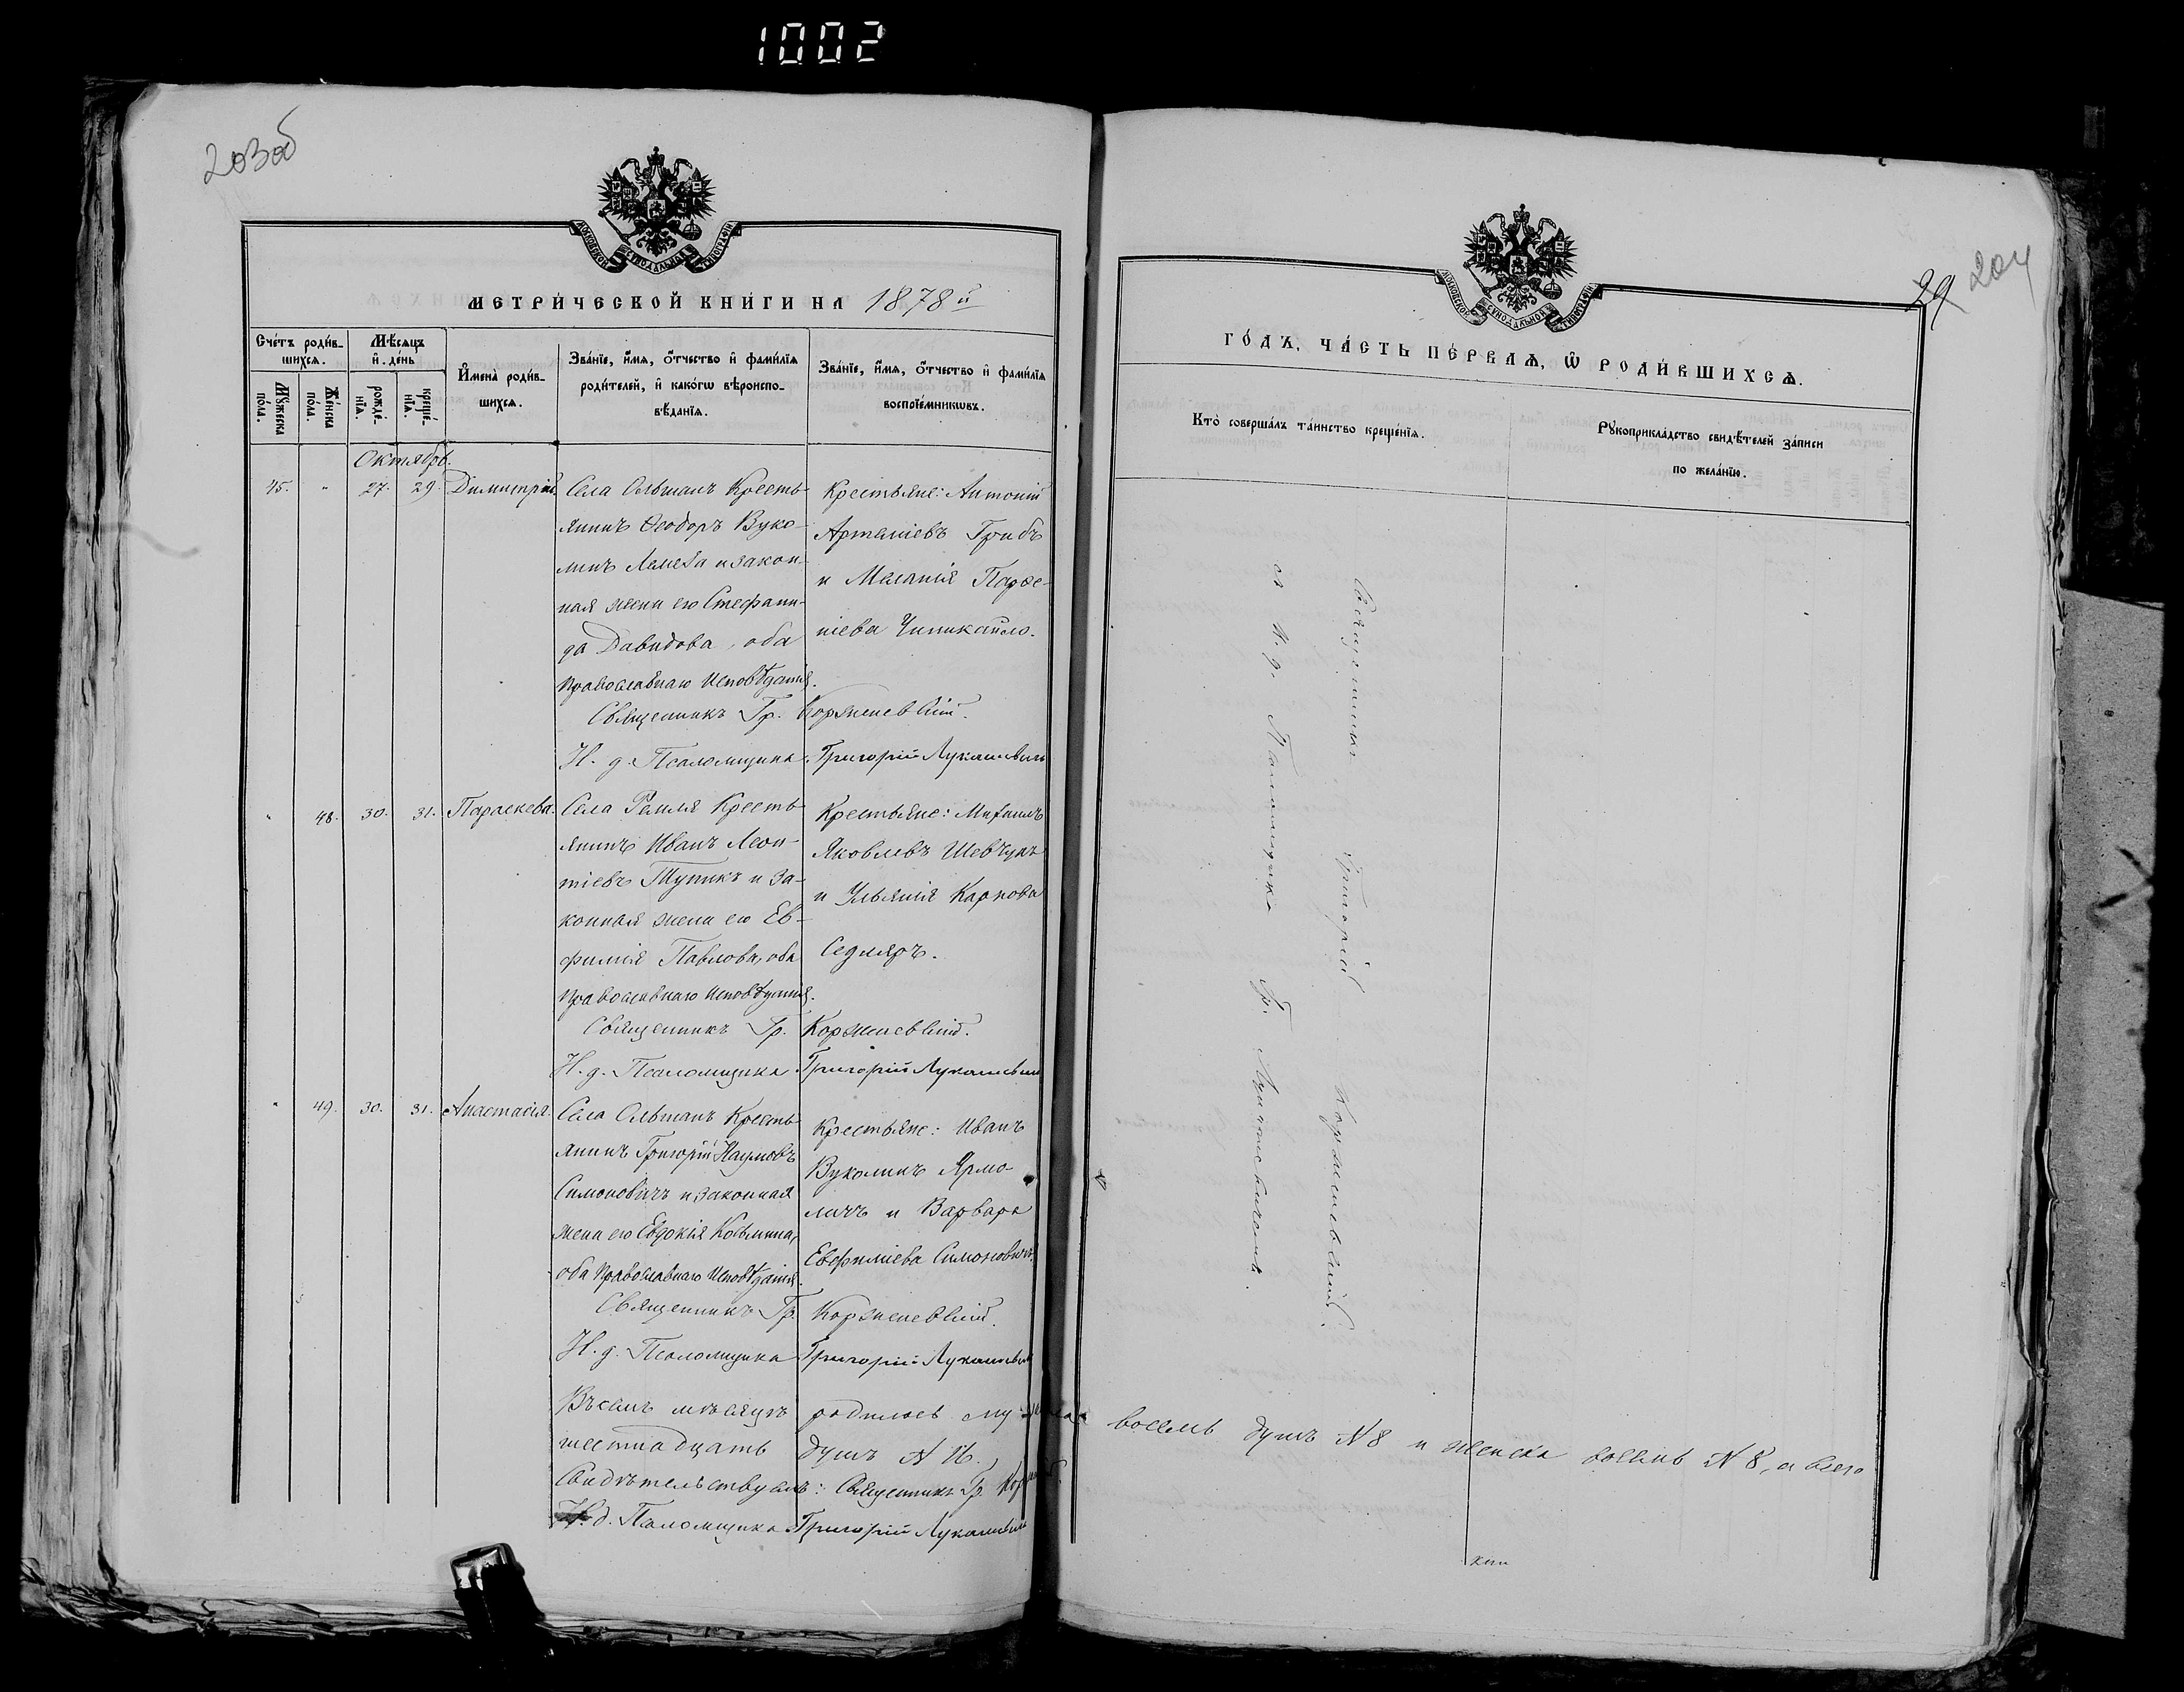 1002
203об
МОСКОВСКОЙ СУНОДАЛЬНОЙ ТИПОГРАФІИ
МЕТРИ́ЧЕСКОЙ КНИ́ГИ НА 1878й
Сче́тъ роди́в-
шихсѧ.
Мѣ́сѧцъ
и҆ де́нь
И҆мена̀ роди́в-
шихсѧ.
Зва́нїе, и҆́мѧ, ѻ҆́тчество и҆ фами́лїѧ
роди́телей, и҆ како́гѡ вѣроиспо-
вѣ́данїѧ.
Зва́нїе, и҆́мѧ, ѻ҆́тчество и҆ фами́лїѧ
воспрїе́мникѡвъ.
Мꙋ́жеска
по́ла.
Же́нска
по́ла.
рожде́-
нїѧ.
креще́-
нїѧ.
Октябрь.
45. " 27. 29. Димитрій.
Села Ольшанъ Кресть-
янинъ Ѳеодоръ Вуко-
линъ Лемеза и закон-
ная жена его Стефани-
да Давидова, оба
Православнаго Исповѣданія.
Крестьяне: Антоній
Артаніевъ Грибъ
и Меланія Парѳе-
ніева Чипикайло.
Священникъ Гр. Корженевскій.
И. д. Псаломщика Григорій Лукашевичъ
" 48. 30. 31. Параскева.
Села Ремля Кресть-
янинъ Иванъ Леон-
тіевъ Тупикъ и за-
конная жена его Ев-
фимія Павлова, оба
Православнаго Исповѣданія.
Крестьяне: Михаилъ
Яковлевъ Шевчукъ
и Ульянія Карпова
Седляръ.
Священникъ Гр. Корженевскій.
И. д. Псаломщика Григорій Лукашевичъ
" 49. 30. 31. Анастасія.
Села Ольшанъ Кресть-
янинъ Григорій Наумовъ
Симоновичъ и законная
жена его Евдокія Козьмина,
оба Православнаго Исповѣданія.
Крестьяне: Иванъ
Вуколинъ Ярмо-
личъ и Варвара
Евфиміева Симоновичъ.
Священникъ Гр. Корженевскій.
И. д. Псаломщика Григорій Лукашевичъ
Въ семъ мѣсяцѣ родилось мужеска восемь душъ № 8 и женска восемь № 8, а всего
шестнадцать душъ № 16.
Свидѣтельствуемъ: Священникъ Гр.
И. д. Псаломщика Григорій Лукашевичъ
29 204
МОСКОВСКОЙ СУНОДАЛЬНОЙ ТИПОГРАФІИ
ГО́ДЪ, ЧА́СТЬ ПЕ́РВАѦ, Ѡ҆ РОДИ́ВШИХСѦ.
Кто̀ соверша́лъ та́инство креще́нїѧ.
Рꙋкоприкла́дство свидѣ́телей за́писи
по жела́нїю.
Священникъ Григорій Корженевскій.
съ и. д. Псаломщика Гр. Лукашевичемъ.